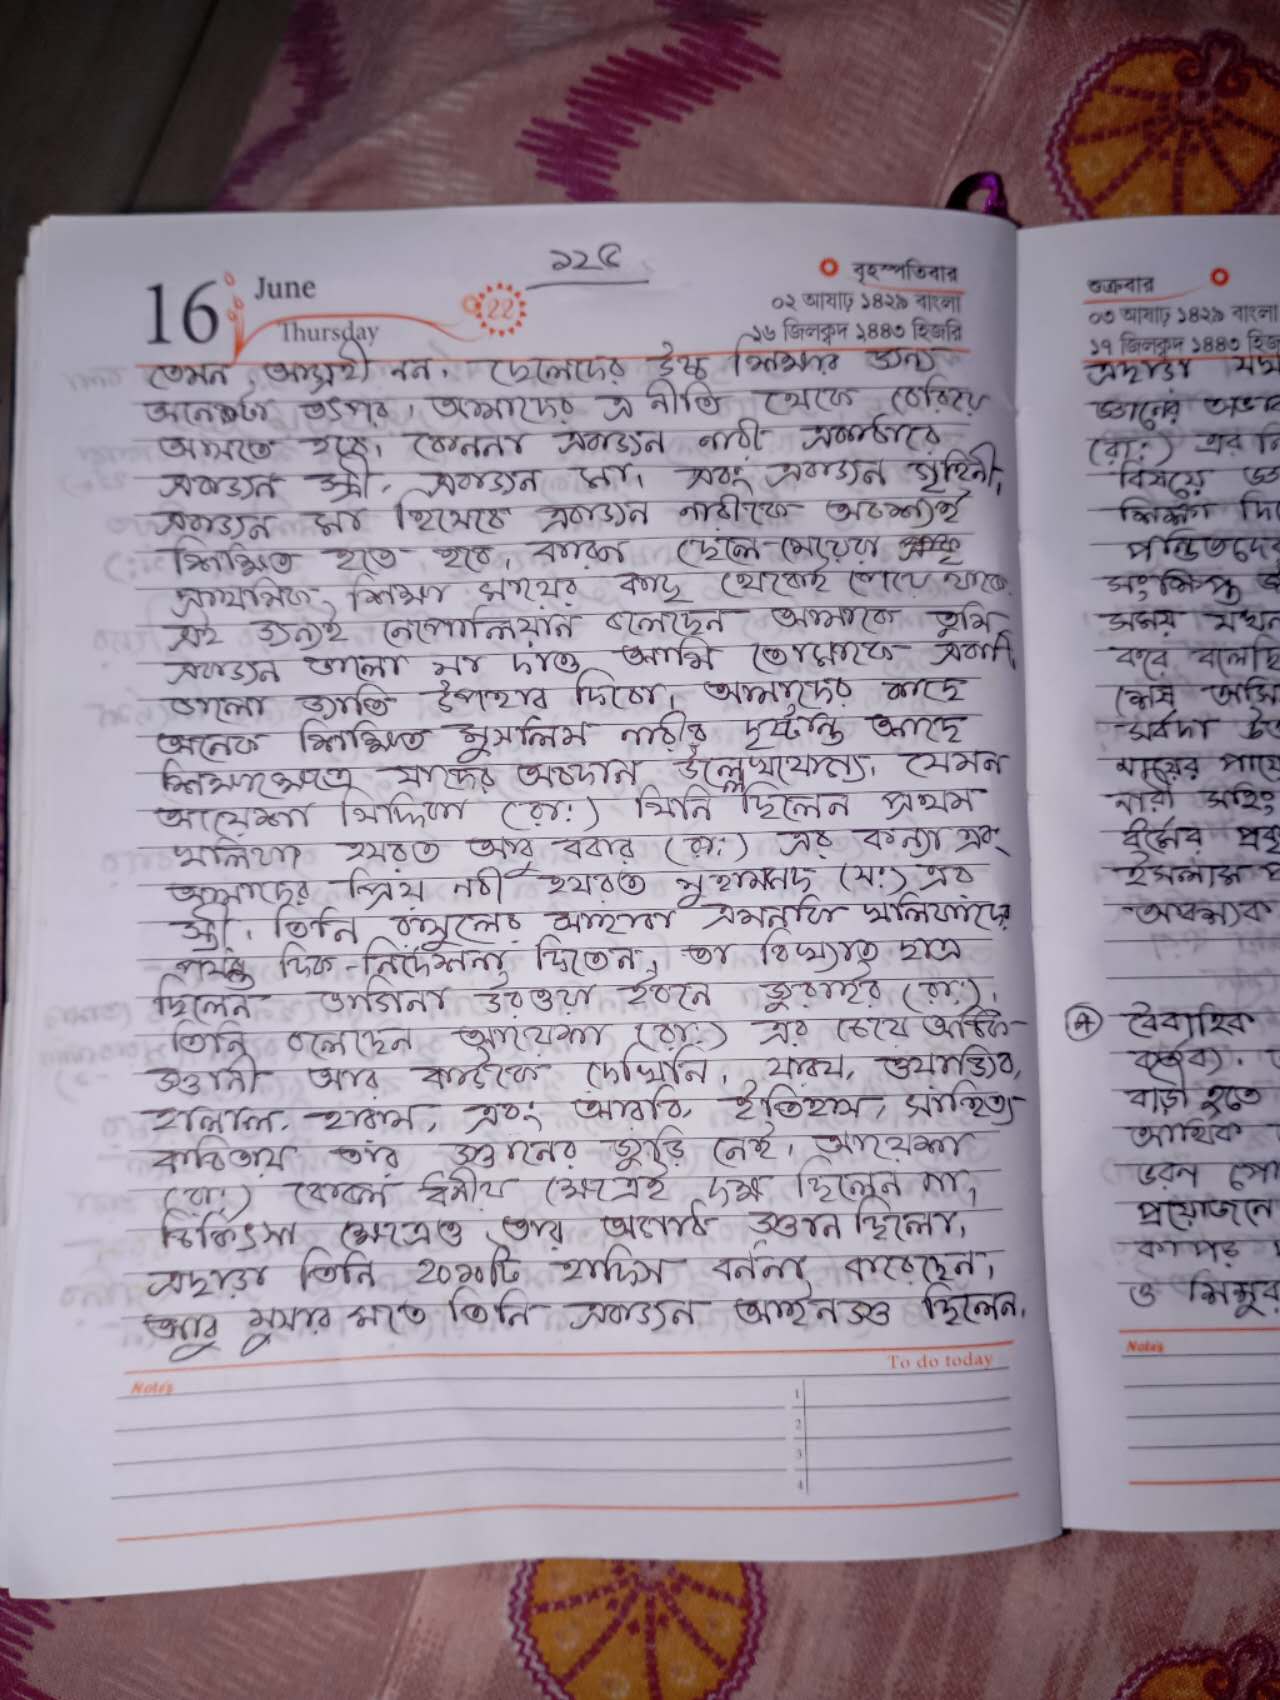 ১২৫
16 June
Thursday
22
বৃহস্পতিবার
০২ আষাঢ় ১৪২৯ বাংলা
১৬ জিলক্বদ ১৪৪৩ হিজরি
তেমন আগ্রহী নন। ছেলেদের উচ্চ শিক্ষার জন্য
অনেকটা তৎপর, আমাদের এ নীতি থেকে বেরিয়ে
আসতে হবে। কেননা একজন নারী একাধারে
একজন স্ত্রী, একজন মা, এবং একজন গৃহিনী,
একজন মা হিসেবে একজন নারীকে অবশ্যই
শিক্ষিত হতে হবে, কারণ ছেলে-মেয়েরা
প্রাথমিক শিক্ষা মায়ের কাছ থেকেই পেয়ে থাকে
এই জন্যই নেপোলিয়ান বলেছেন আমাকে তুমি
একজন ভালো মা দাও আমি তোমাকে একটি
ভালো জাতি উপহার দিবো। আমাদের কাছে
অনেক শিক্ষিত মুসলিম নারীর দৃষ্টান্ত আছে
শিক্ষাক্ষেত্রে যাদের অবদান উল্লেখযোগ্য, যেমন
আয়েশা সিদ্দিকা (রা:) যিনি ছিলেন প্রথম
খলিফা হযরত আবু বকার (রা:) এর কন্যা এবং
আমাদের প্রিয় নবী হযরত মুহাম্মদ (স:) এর
স্ত্রী, তিনি রাসুলের সাহাবা এমনকি খলিফাদের
পর্যন্ত দিক-নির্দেশনা দিতেন, তা বিখ্যাত ছাত্র
ছিলেন ভাগিনা উরওয়া ইবনে জুবাইর (রা:),
তিনি বলেছেন আয়েশা (রা:) এর চেয়ে অধিক
জ্ঞানী আর কাউকে দেখিনি, ফারয, ওয়াজিব,
হালাল, হারাম, এবং আরবি, ইতিহাস, সাহিত্য
কবিতায় তার জ্ঞানের জুড়ি নেই, আয়েশা
(রা:) কেবল দ্বিনীয় ক্ষেত্রেই দক্ষ ছিলেন না,
চিকিৎসা ক্ষেত্রেও তার অগাধ জ্ঞান ছিলো,
এছাড়া তিনি ২০১০টি হাদিস বর্ননা করেছেন,
আবু মুসার মতে তিনি একজন আইনজ্ঞ ছিলেন,
Notes
To do today
1
2
3
4
শুক্রবার
০৩ আষাঢ় ১৪২৯ বাংলা
১৭ জিলক্বদ ১৪৪৩ হিজ
এছাড়া
জ্ঞানের
(রা:) এর
বিষয়ে
শিক্ষা
পন্ডিতদের
সংক্ষিপ্ত
সময় যখন
করে বলেছি
শেষ
সর্বদা
মায়ের পায়ে
নারী
দ্বীনের
ইসলাম
আবশ্যক
বৈবাহিক
কর্তব্য।
বাড়ী হতে
আর্থিক
ভরন পো
প্রয়োজনে
কাপড়
ও
Notes